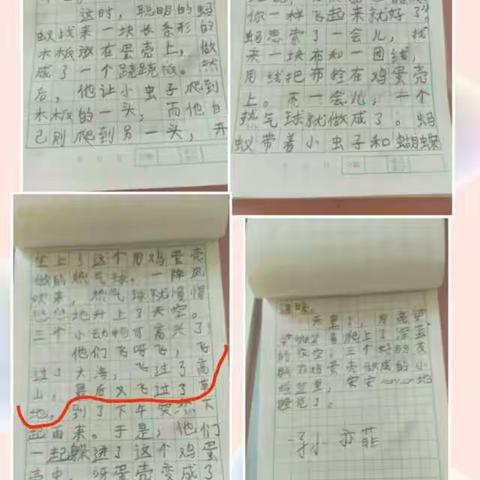 这时，聪明的蚂
蚁找来一块长条形的
木板放在蛋壳上，做
成了一个跷跷板。然
后，他让小虫子爬到
木板的一头，而他自
己则爬到另一头，开
你一样飞起来就好了。
蚂思索了一会儿，找
来一块布和一团线，
用线把布拴在鸡蛋壳
上。不一会儿，一个
热气球就做成了。蚂
蚁带着小虫子和蝴蝶
坐上了这个用鸡蛋壳
做的热气球。一阵风
吹来，热气球就慢慢
地升上了天空。
三个小动物可高兴了！
他们飞呀飞，飞
过了大海，飞过了高
山，最后又飞过了草
地。到了下午突然下
起雨来。于是，他们
一起躲进了这个鸡蛋
壳里，呀蛋壳变成了
天黑了，月亮
爬上了深蓝
的夜空，三个好朋友
用鸡蛋壳做成的小
摇篮里，安安地
睡觉了。
孙亦菲